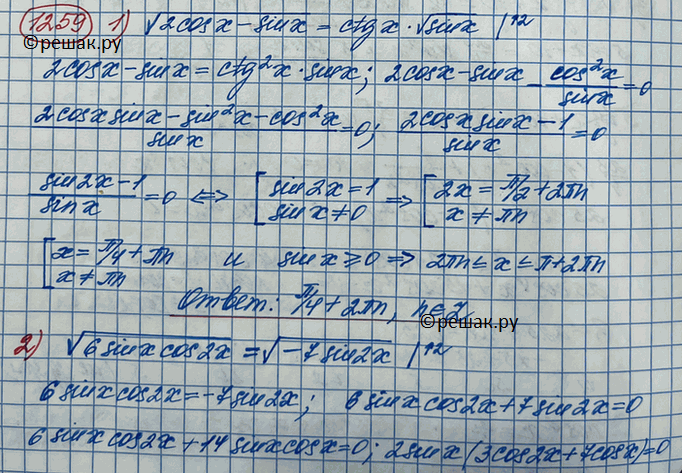 1259 1) √2cosx-sinx = ctgx·√sinx |^2
©решак.ру
2cosx-sinx = ctg²x·sinx; 2cosx-sinx - cos²x/sinx = 0
(2cosxsinx-sin²x-cos²x)/sinx = 0; (2cosxsinx-1)/sinx = 0
(sin2x-1)/sinx = 0 ⟺ [sin2x=1 ⟹ [2x = π/2+2πn
sinx≠0 x ≠ πn
[x = π/4+πn и sinx ⩾ 0 ⟹ 2πn ≤ x ≤ π+2πn
x ≠ πn
Ответ: π/4+2πn, n∈Z
©решак.ру
2) √6sinxcos2x = √-7sin2x |^2
6sinxcos2x = -7sin2x; 6sinxcos2x+7sin2x=0
6sinxcos2x+14sinxcosx=0; 2sinx(3cos2x+7cosx)=0